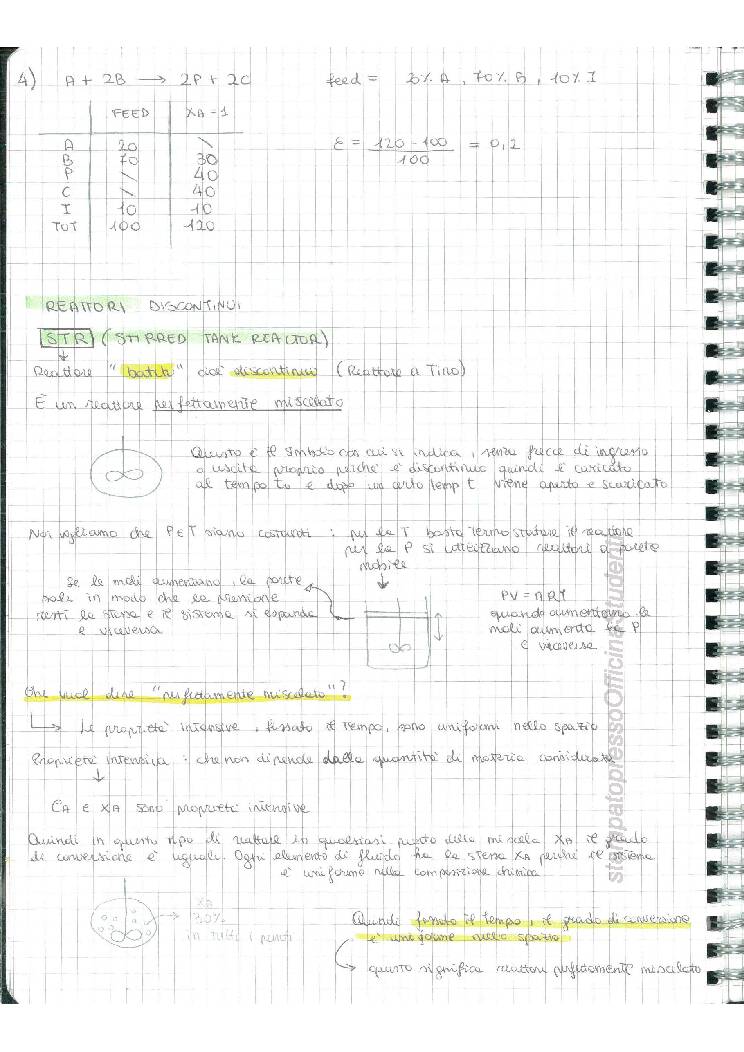 4) A + 2B → 2P + 2C feed = 20% A, 70% B, 10% I
FEED XA=1
A 20 \
B 70 30
P \ 40
C \ 40
I 10 10
TOT 100 120
ε = 120 - 100 / 100 = 0,2
REATTORI DISCONTINUI
STR (STIRRED TANK REACTOR)
Reattore "batch" cioè discontinuo (Reattore a Tino)
È un reattore perfettamente miscelato
Questo è il simbolo con cui si indica, senza frecce di ingresso
o uscita proprio perché è discontinuo quindi è caricato
al tempo t0 e dopo un certo temp t viene aperto e scaricato
Noi vogliamo che P e T siano costanti : per la T basta termostatare il reattore
per la P si utilizzano reattori a parete
mobile
se le moli aumentano, la parete
sale in modo che la pressione
resti la stessa e il sistema si espande
e viceversa
PV = nRT
quando aumentano le
moli aumenta la P
e viceversa
Che vuol dire "perfettamente miscelato"?
Le proprietà intensive, fissato il tempo, sono uniformi nello spazio
Proprietà intensiva : che non dipende dalla quantità di materia considerata
CA e XA sono proprietà intensive
Quindi in questo tipo di reattore in qualsiasi punto della miscela XA il grado
di conversione è uguale. Ogni elemento di fluido ha la stessa XA perché il sistema
è uniforme nella composizione chimica
XA
30%
in tutti i punti
Quindi fissato il tempo, il grado di conversione
è uniforme nello spazio
questo significa reattori perfettamente miscelato
stampatopressoOfficinaStudenti